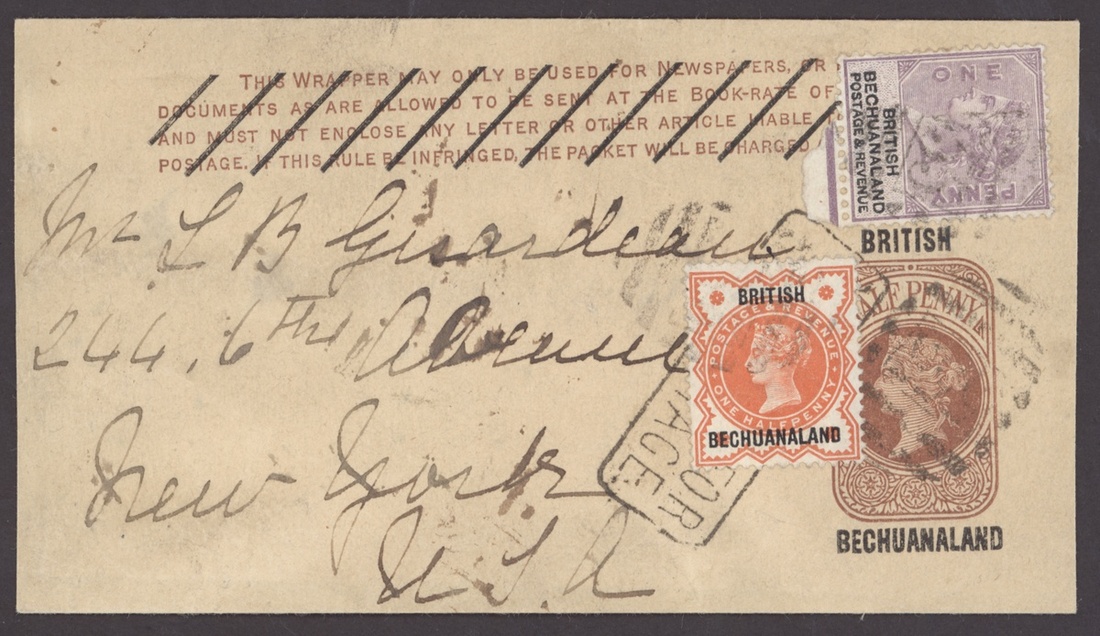 THIS WRAPPER MAY ONLY BE USED FOR NEWSPAPERS, OR
DOCUMENTS AS ARE ALLOWED TO BE SENT AT THE BOOK-RATE OF
AND MUST NOT ENCLOSE ANY LETTER OR OTHER ARTICLE LIABLE T
POSTAGE. IF THIS RULE BE INFRINGED, THE PACKET WILL BE CHARGED
ONE
PENNY
BRITISH
BECHUANALAND
POSTAGE & REVENUE
Mr L B Girardeau
244, 6th Avenue
New York
U.S.A
BRITISH
POSTAGE & REVENUE
ONE HALFPENNY
BECHUANALAND
BRITISH
ALF PENNY
BECHUANALAND
FOR
TAGE